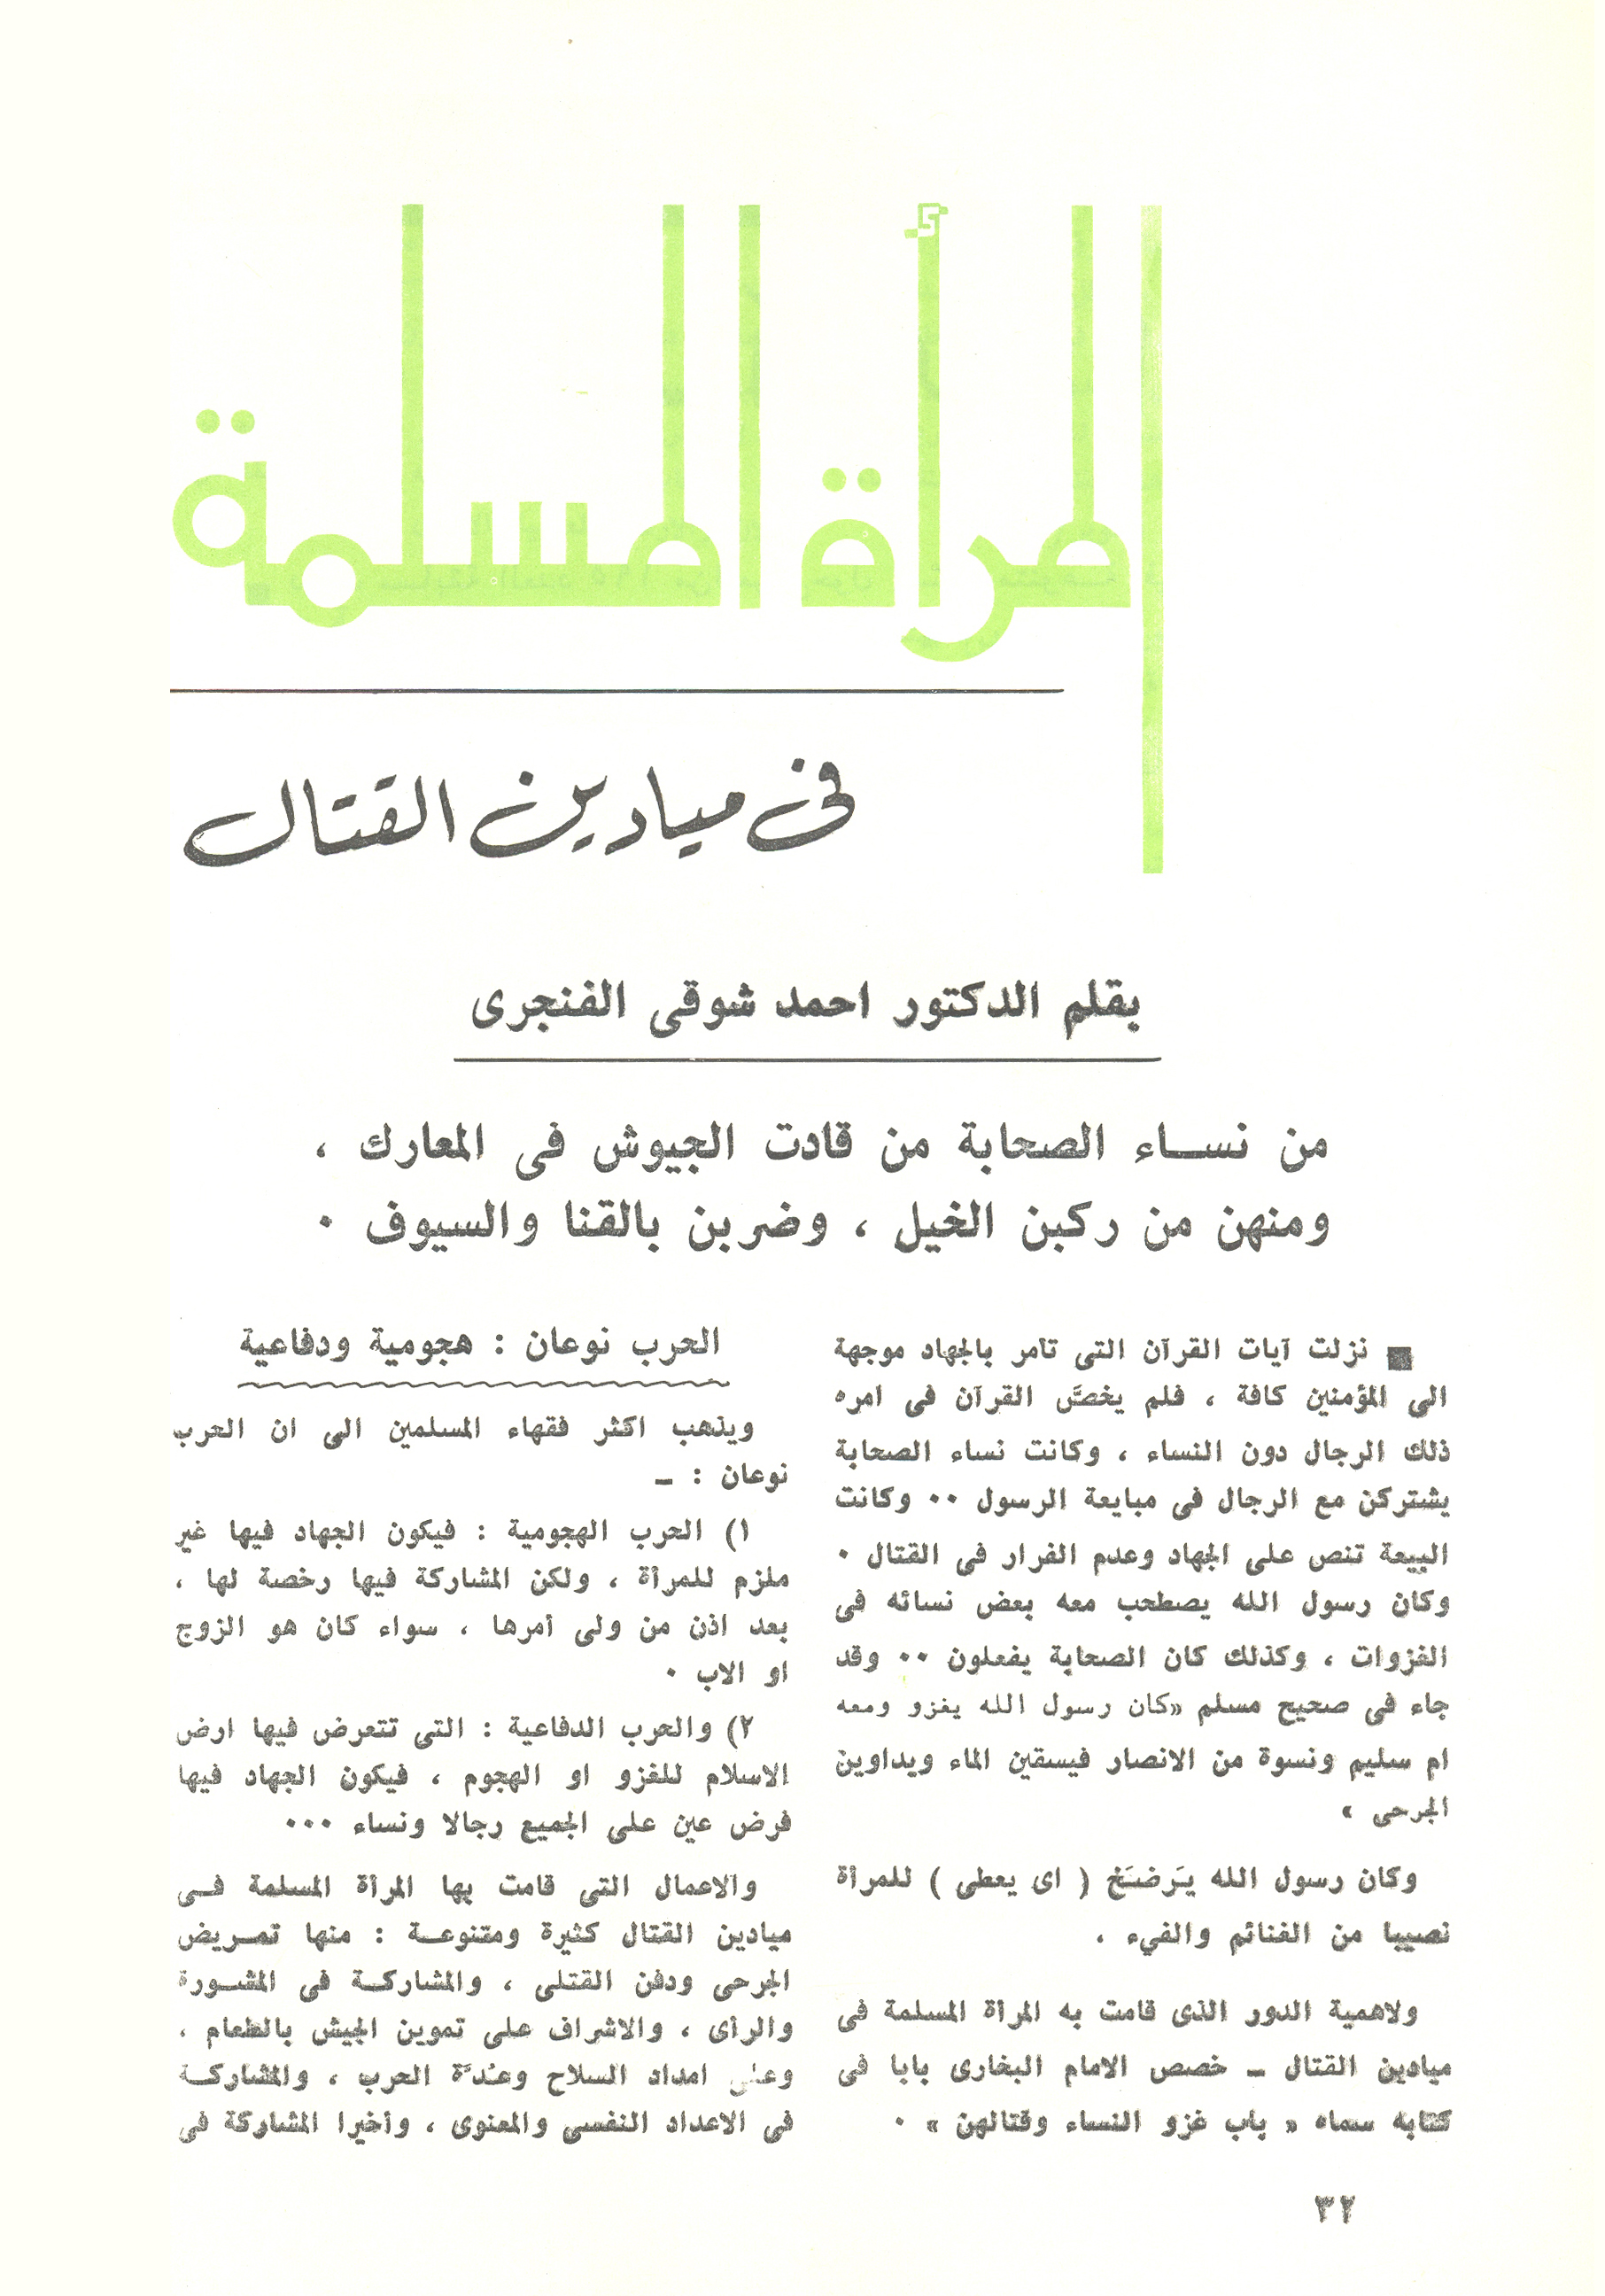 المرأة المسلمة
فى ميادين القتال
بقلم الدكتور احمد شوقى الفنجرى
من نســاء الصحابة من قادت الجيوش فى المعارك ،
ومنهن من ركبن الخيل ، وضربن بالقنا والسيوف ٠
■ نزلت آيات القرآن التى تأمر بالجهاد موجهة
الى المؤمنين كافة ، فلم يخصَّ القرآن فى امره
ذلك الرجال دون النساء ، وكانت نساء الصحابة
يشتركن مع الرجال فى مبايعة الرسول ٠٠ وكانت
البيعة تنص على الجهاد وعدم الفرار فى القتال ٠
وكان رسول الله يصطحب معه بعض نسائه فى
الغزوات ، وكذلك كان الصحابة يفعلون ٠٠ وقد
جاء فى صحيح مسلم «كان رسول الله يغزو ومعه
ام سليم ونسوة من الانصار فيسقين الماء ويداوين
الجرحى »
وكان رسول الله يَرضَخ ( اى يعطى ) للمرأة
نصيبا من الغنائم والفيء .
ولاهمية الدور الذى قامت به المرأة المسلمة فى
ميادين القتال ــ خصص الامام البخارى بابا فى
كتابه سماه « باب غزو النساء وقتالهن » ٠
الحرب نوعان : هجومية ودفاعية
ويذهب اكثر فقهاء المسلمين الى ان الحرب
نوعان : ــ
١) الحرب الهجومية : فيكون الجهاد فيها غير
ملزم للمرأة ، ولكن المشاركة فيها رخصة لها ،
بعد اذن من ولى أمرها ، سواء كان هو الزوج
او الاب ٠
٢) والحرب الدفاعية : التى تتعرض فيها ارض
الاسلام للغزو او الهجوم ، فيكون الجهاد فيها
فرض عين على الجميع رجالا ونساء ٠٠٠
والاعمال التى قامت بها المرأة المسلمة فــى
ميادين القتال كثيرة ومتنوعــة : منها تمــريض
الجرحى ودفن القتلى ، والمشاركــة فى المشــورة
والرأى ، والاشراف على تموين الجيش بالطعام ،
وعلى امداد السلاح وعُدَّة الحرب ، والمشاركــة
فى الاعداد النفسى والمعنوى ، وأخيرا المشاركة فى
٣٢